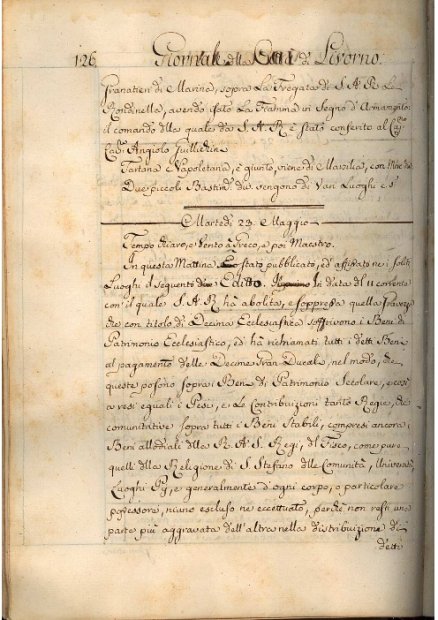 126. Giornale della Città di Livorno.
Granatieri di Marina, sopra La Fregata di S. A. R. La
Rondinella, avendo issato La Fiamma in Segno d'Armamento:
il comando della quale da S. A. R. è stato conferito al
Angiolo
Tartana Napoletana, è giunta, viene di Marsilia, con
Due piccoli Bastim.ti che vengono di Vari Luoghi e S
Martedi 23. Maggio
Tempo chiaro, e Vento à Greco, e poi Maestro.
In questa Mattina è stato pubblicato, ed affissato ne i soliti
Luoghi il seguente Editto. In Data del 11 corrente
con il quale S. A. R. hà abolita, e soppressa quella
che con titolo di Decima Ecclesiastica soffrivono i Beni di
Patrimonio Ecclesiastico, ed hà richiamati tutti i detti Beni
al pagamento delle Decime Gran Ducali, nel modo, che
queste posono sopra i Beni di Patrimonio Secolare, e così
a resi eguali i Pesi, e Le Contribuizioni tanto Regie, che
comunitative sopra tutti i Beni Stabili, compresi ancora i
Beni allodiali della R. A. S. Regi, del Fisco, come pure
quelli della Religione di S. Stefano delle Comunità, Università
Luoghi Pij, e generalmente d'ogni corpo, o particolare
possessore, niuno escluso ne eccettuato, perchè non resti una
parte più aggravata dell'altra nella distribuizione di
detti